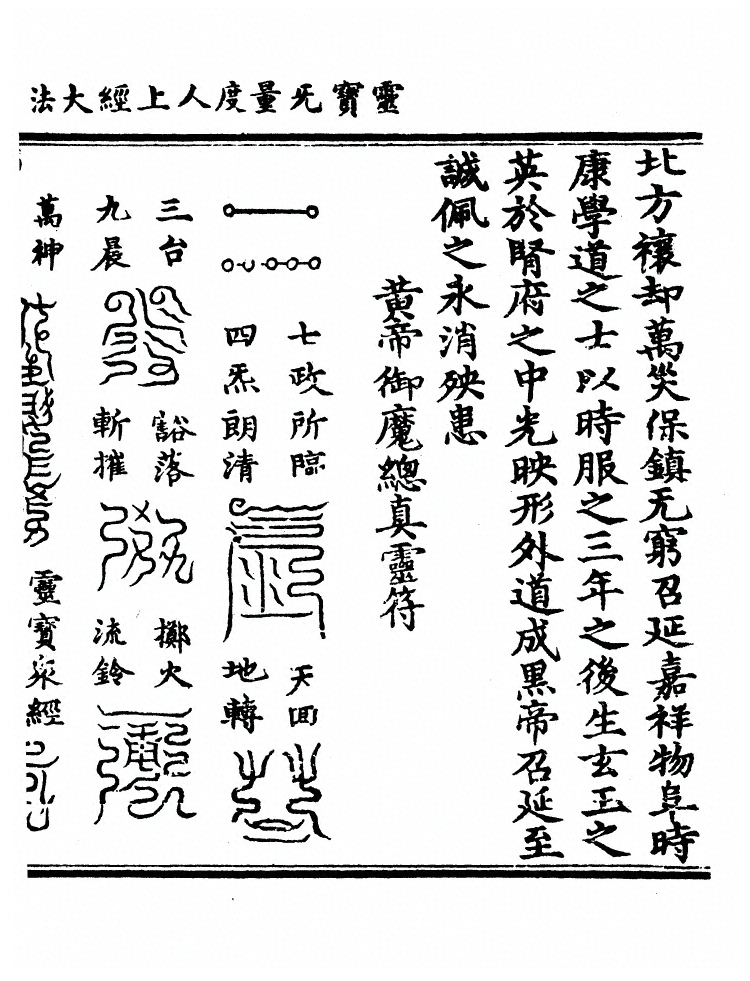 靈寶无量度人上經大法
北方禳却萬災保鎮无窮召延嘉祥物阜時
康學道之士以時服之三年之後生玄玉之
英於腎府之中光映形外道成黑帝召延至
誠佩之永消殃患
黃帝御魔總真靈符
七政所臨
四炁朗清
天回
地轉
三台
九晨
豁落
斬摧
擲火
流鈴
萬神
靈寶衆經